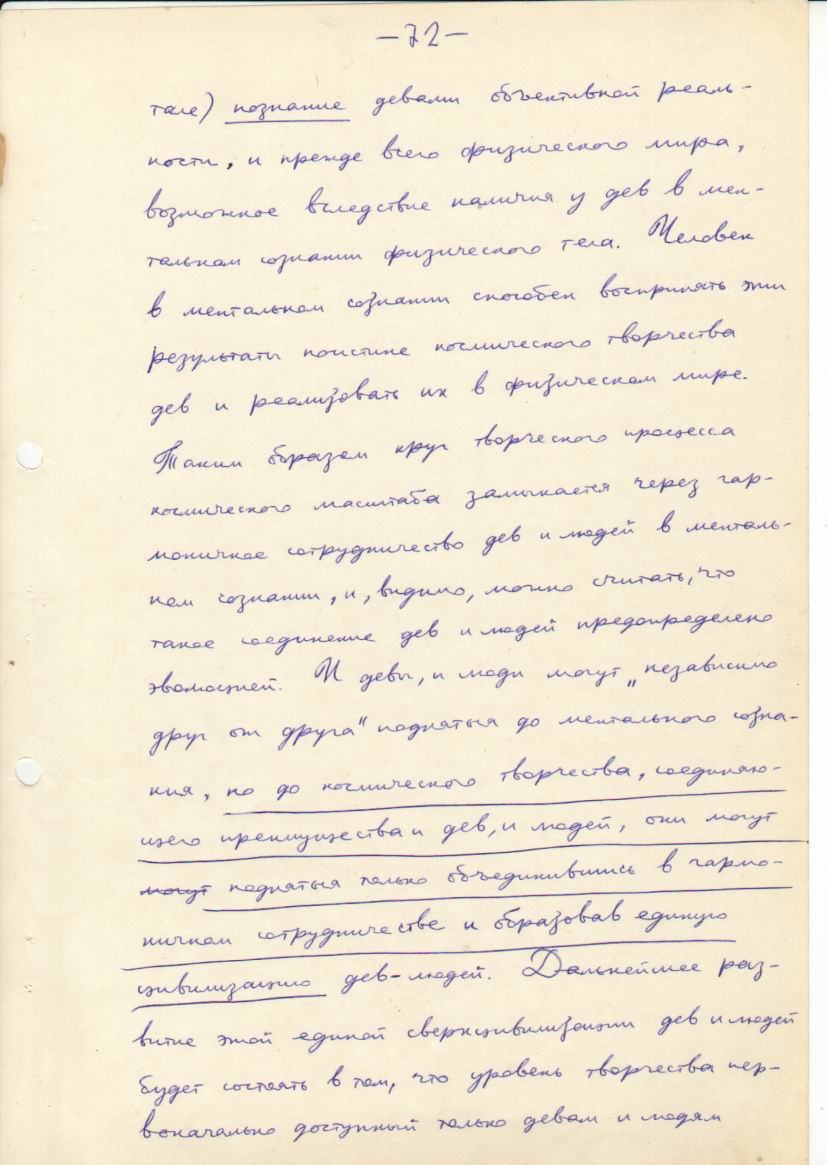 —72—
тале) познание девами объективной реаль-
ности, и прежде всего физического мира,
возможное вследствие наличия у дев в мен-
тальном сознании физического тела. Человек
в ментальном сознании способен воспринять эти
результаты поистине космического творчества
дев и реализовать их в физическом мире.
Таким образом круг творческого процесса
космического масштаба замыкается через гар-
моничное сотрудничество дев и людей в менталь-
ном сознании, и, видимо, можно считать, что
такое соединение дев и людей предопределено
эволюцией. И девы, и люди могут „независимо
друг от друга" подняться до ментального созна-
ния, но до космического творчества, соединяю-
щего преимущества и дев, и людей, они могут
могут подняться только объединившись в гармо-
ничном сотрудничестве и образовав единую
цивилизацию дев-людей. Дальнейшее раз-
витие этой единой сверхцивилизации дев и людей
будет состоять в том, что уровень творчества пер-
воначально доступный только девам и людям